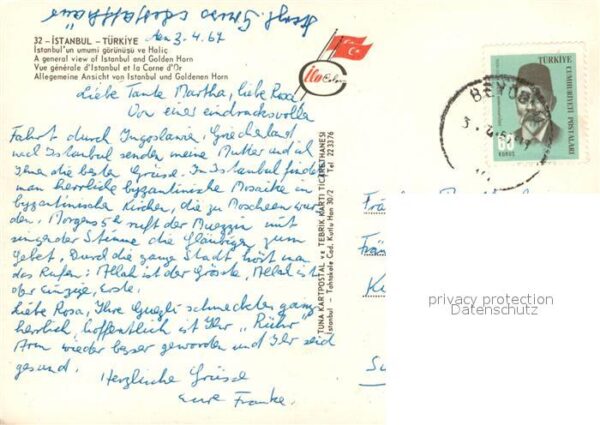 32 - İSTANBUL - TÜRKİYE
İstanbul'un umumi görünüşü ve Haliç
A general view of Istanbul and Golden Horn
Vue générale d'Istanbul et la Corne d'Or
Allegemeine Ansicht von Istanbul und Goldenen Horn
den 3.4.67
Liebe Tante Martha, liebe Rosa
Von einer eindrucksvollen
Fahrt durch Jugoslawien, Griechenland
und Istanbul senden meine Mutter und ich
Ihnen die besten Grüsse. In Istanbul findet
man herrliche byzantinische Mosaike in
byzantinischen Kirchen, die zu Moscheen wur
den. Morgens 5h ruft der Muezzin mit
singender Stimme die Gläubigen zum
Gebet. Durch die ganze Stadt hört man
das Rufen: Allah ist der Grösste, Allah ist
der einzige, Erste.
Liebe Rosa, Ihre Guetzli schmeckten ganz
herrlich, hoffentlich ist Ihr „Rühr"
Arm wieder besser geworden und Ihr seid
gesund.
Herzliche Grüsse
Eure Franke.
TUNA KARTPOSTAL ve TEBRİK KARTI TİCARETHANESİ
İstanbul - Tahtakale Cad. Kutlu Han 30/2 Tel 223376
TÜRKİYE
CUMHURİYETİ POSTALARI
60
KURUŞ
BEYOĞ
Frä
Frä
K
privacy protection
Datenschutz